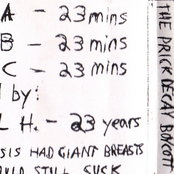 A - 23 mins
B - 23 mins
C - 23 mins
by:
L H. - 23 years
SIS HAD GIANT BREASTS
STILL SUCK
THE PRICK DECAY BOYCOTT